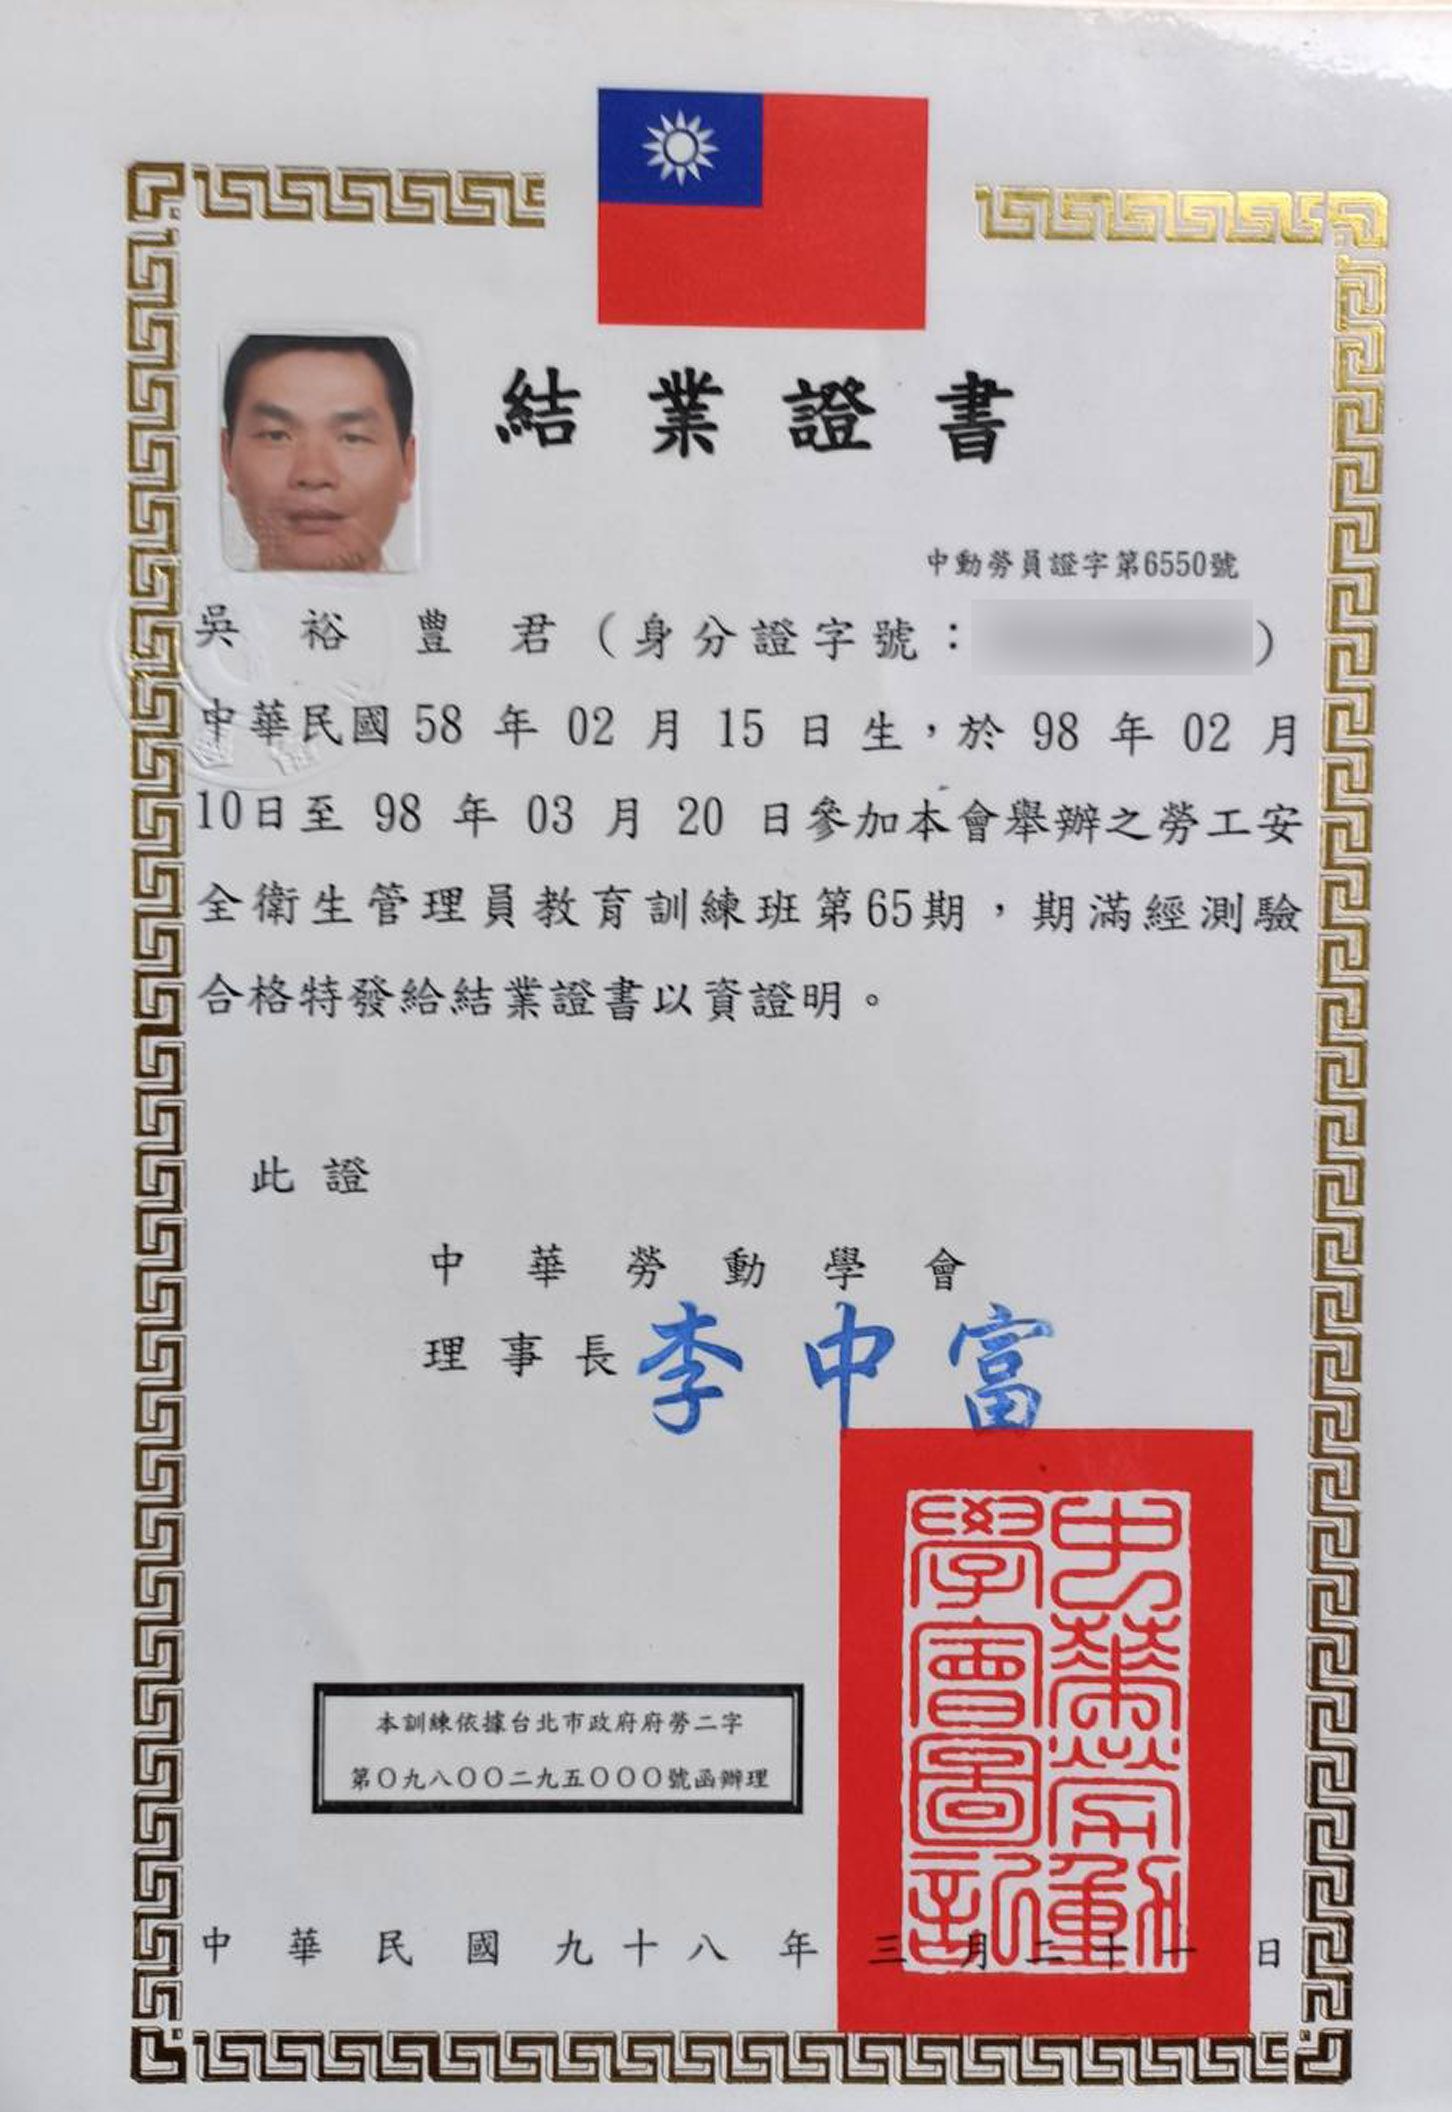 結業證書
中動勞員證字第6550號
吳裕豐君（身分證字號：）
中華民國 58 年 02 月 15 日 生，於 98 年 02 月
10日至 98 年 03 月 20 日參加本會舉辦之勞工安
全衛生管理員教育訓練班第65期，期滿經測驗
合格特發給結業證書以資證明。
此證
中華勞動學會
理事長李中富
中華勞動
學會圖記
本訓練依據台北市政府府勞二字
第〇九八〇〇二九五〇〇〇號函辦理
中華民國九十八年三月二十一日